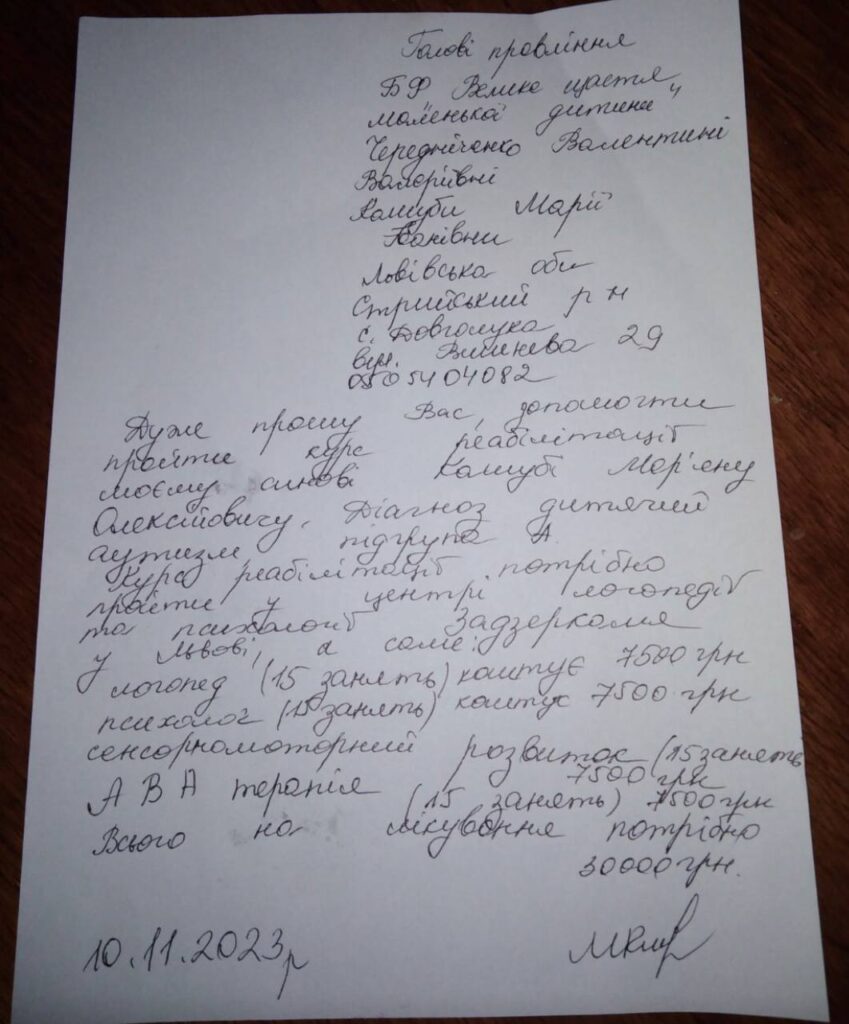 Голові правління
БФ Велике щастя
маленької дитини"
Чередніченко Валентині
Валеріївні
Кашуби Марії
Іванівни
Львівська обл
Стрийський р н
с. Довголука
вул. Вишнева 29
0505404082
Дуже прошу Вас допомогти
пройти курс реабілітації
моєму синові Кашубі Мар'яну
Олексійовичу. Діагноз дитячий
аутизм, підгрупа А.
Курс реабілітації потрібно
пройти у центрі логопедії
та психології Задзеркалля
у Львові, а саме:
логопед (15 занять) коштує 7500 грн
психолог (15 занять) коштує 7500 грн
сенсорномоторний розвиток (15 занять
7500 грн
АВА терапія (15 занять) 7500 грн
Всього на лікування потрібно
30000 грн.
10.11.2023р